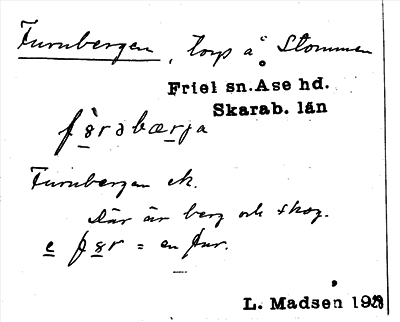 Furubergen, torp å Stommen
Friel sn. Åse hd.
Skarab. län
fơrəbærja
Furubergen ek.
Där är berg och skog.
e fər = en fur.
L. Madsen 1928